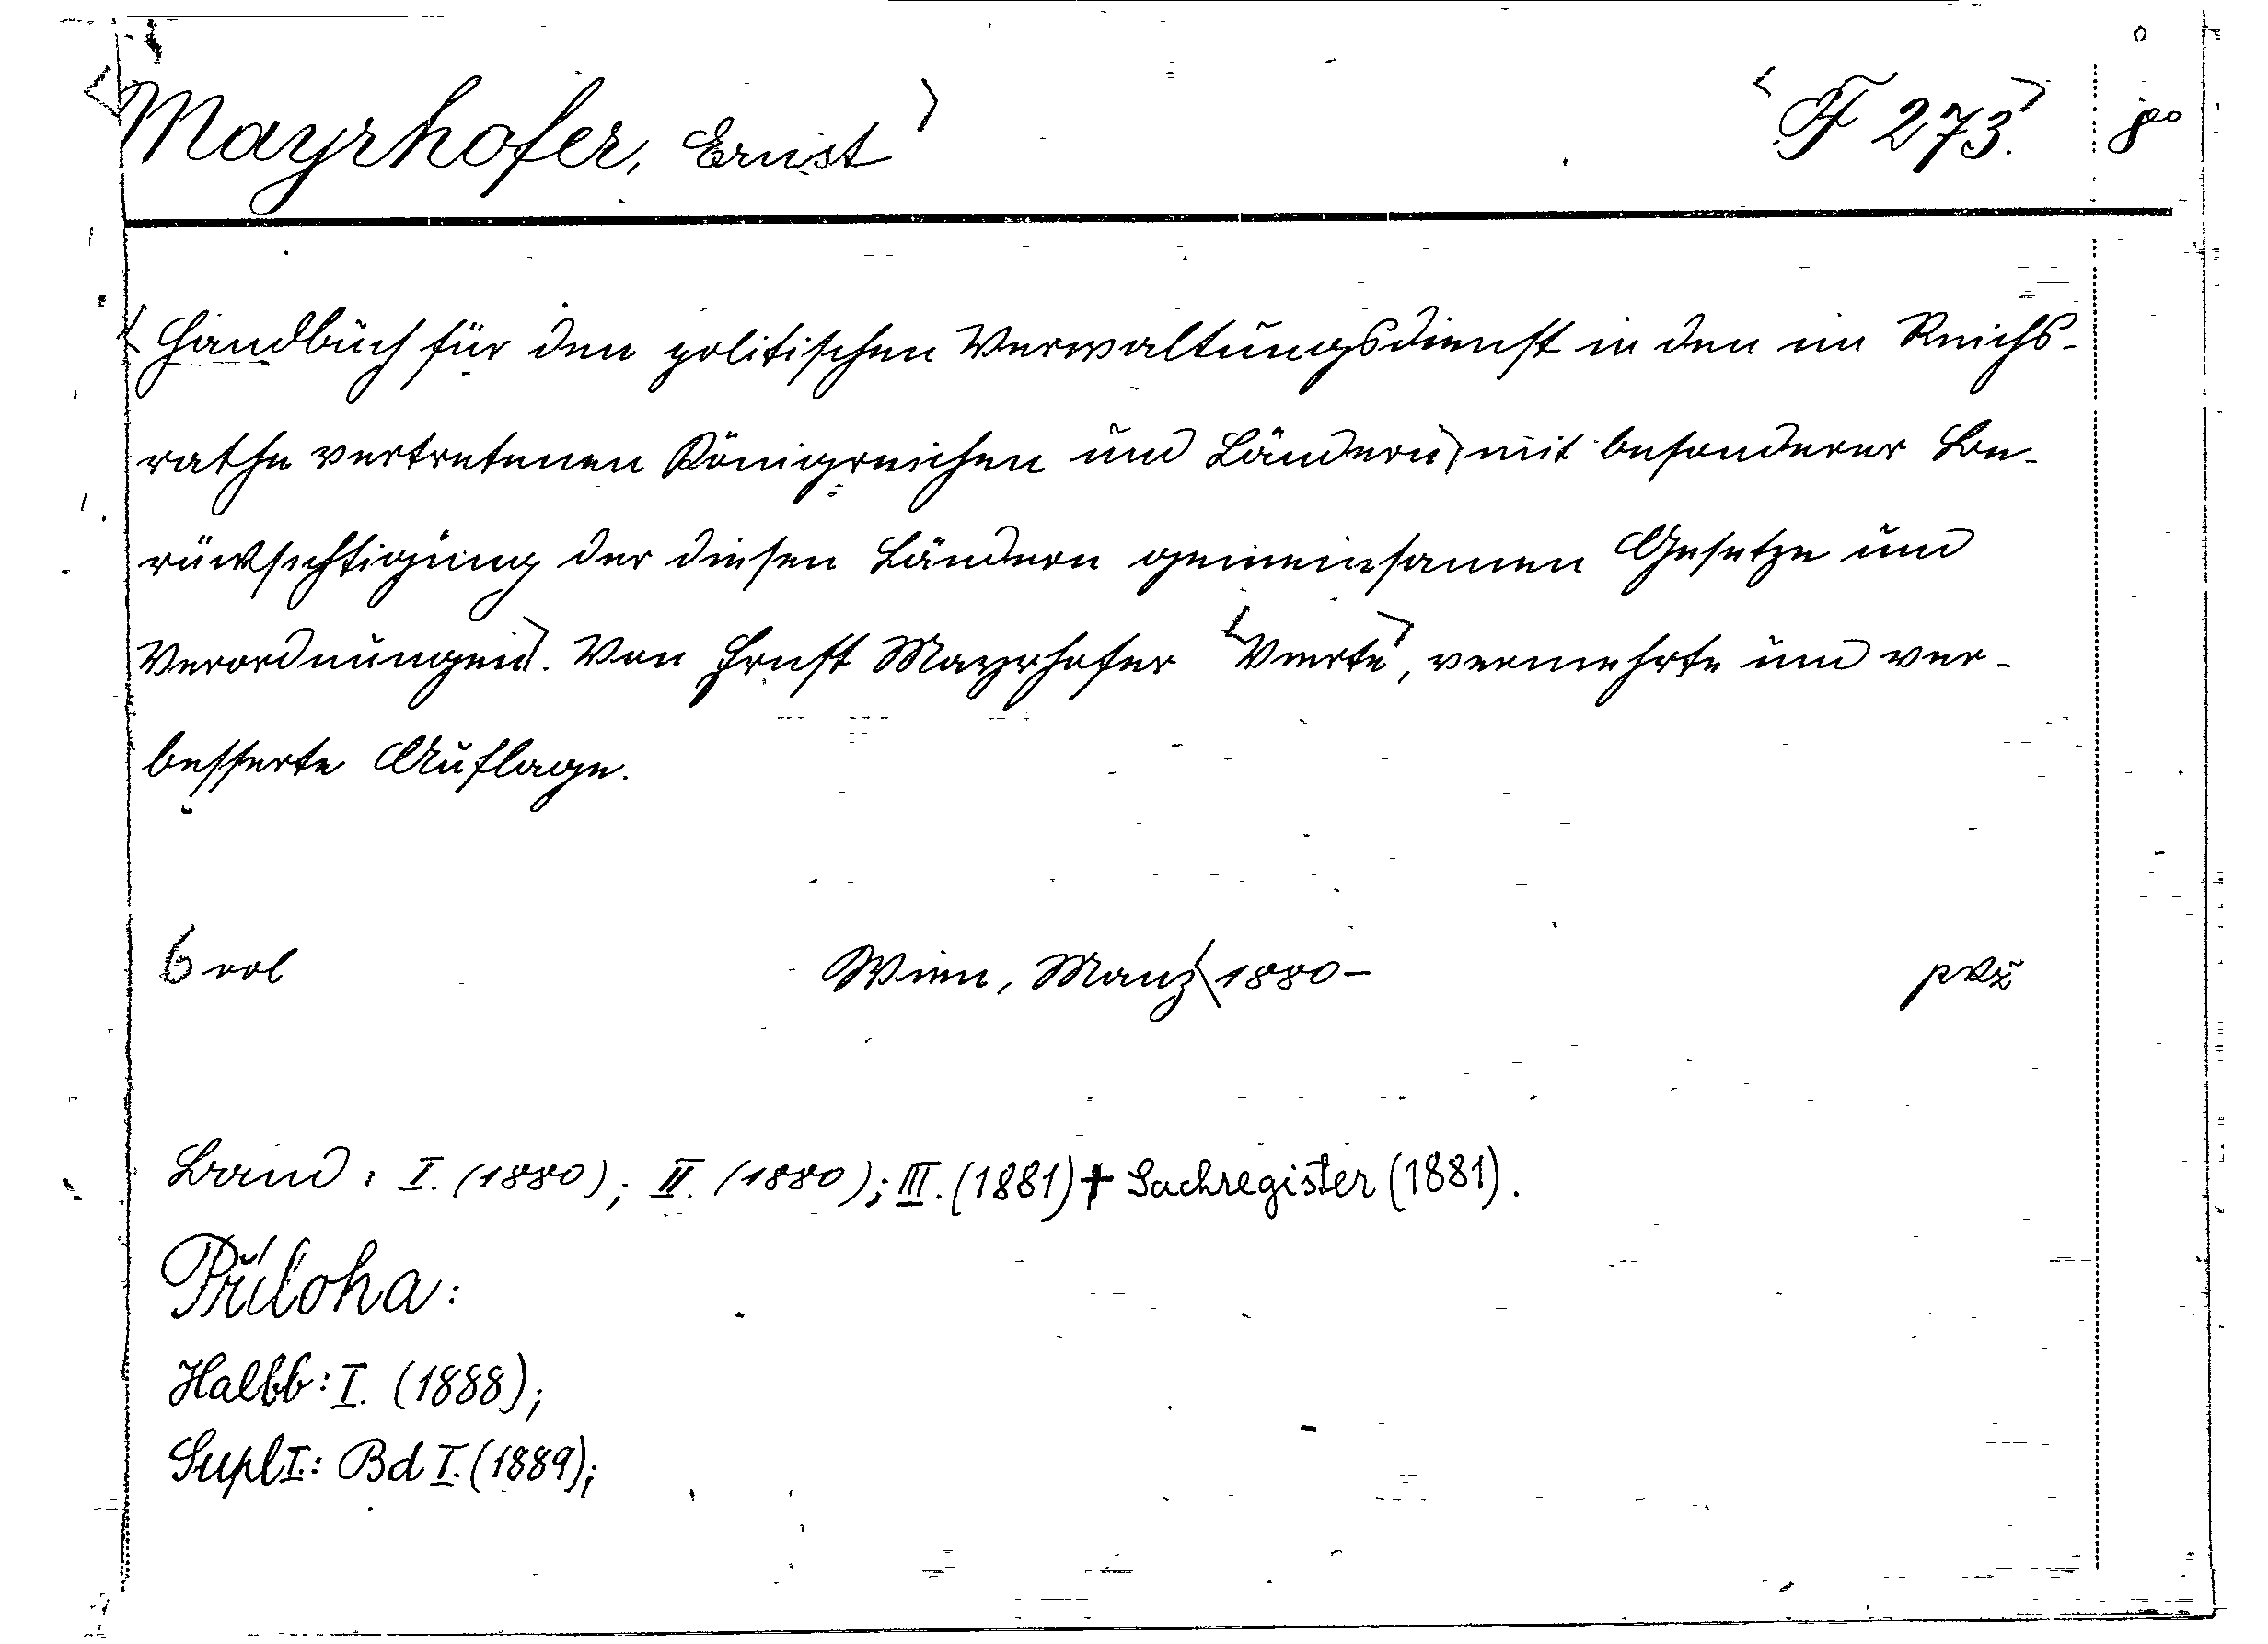 Mayrhofer, Ernst F 273. 8°
Handbuch für den politischen Verwaltungsdienst in den im Reichs-
rathe vertretenen Königreichen und Ländern mit besonderer Be-
rücksichtigung der diesen Ländern gemeinsamen Gesetze und
Verordnungen. Von Ernst Mayrhofer Vierte, vermehrte und ver-
besserte Auflage.
6 vol Wien, Manz 1880-
Band: I. (1880); II. (1880); III. (1881) + Sachregister (1881).
Příloha:
Halbb: I. (1888);
Supl I.: Bd I. (1889);